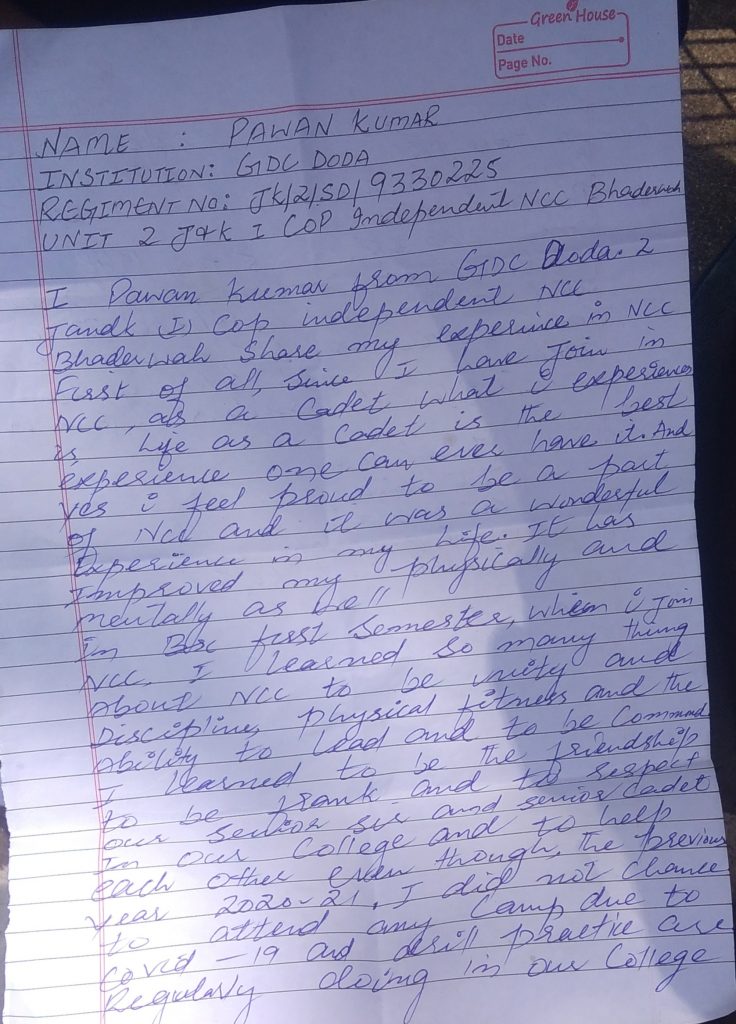 Green House
Date
Page No.
NAME : PAWAN KUMAR
INSTITUTION: GDC DODA
REGIMENT NO: JK/21/SD/9330225
UNIT 2 J&K I COP Independent NCC Bhaderwah
I Pawan Kumar from GDC Doda. 2
JandK (I) Cop independent NCC
Bhaderwah Share my experince in NCC
First of all, Since I have Join in
NCC, as a Cadet what i experience
is life as a Cadet is the best
experience one can ever have it. And
Yes i feel proud to be a part
of NCC and it was a wonderful
Experience in my Life. It has
Improved my physically and
mentally as well
In Bsc first semester, when i Join
NCC. I learned so many thing
About NCC to be unity and
Discipline, physical fitness and the
ability to lead and to be Command
I learned to be the friendship
to be frank and to respect
our Senior sir and senior Cadet
In our College and to help
each other even though, the previous
year 2020-21, I did not Chance
to attend any Camp due to
Covid-19 and drill practice are
Regularly doing in our College